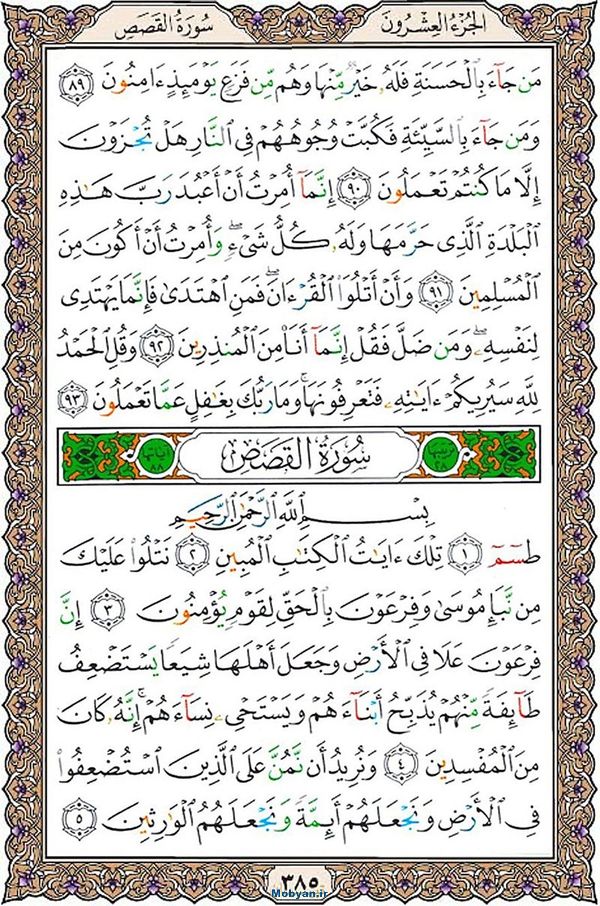 الجُزءُ العِشرُونَ
سُورَةُ القَصَصِ
مَن جَآءَ بِٱلۡحَسَنَةِ فَلَهُۥ خَيۡرٞ مِّنۡهَا وَهُم مِّن فَزَعٖ يَوۡمَئِذٍ ءَامِنُونَ ٨٩
وَمَن جَآءَ بِٱلسَّيِّئَةِ فَكُبَّتۡ وُجُوهُهُمۡ فِي ٱلنَّارِ هَلۡ تُجۡزَوۡنَ
إِلَّا مَا كُنتُمۡ تَعۡمَلُونَ ٩٠ إِنَّمَآ أُمِرۡتُ أَنۡ أَعۡبُدَ رَبَّ هَٰذِهِ
ٱلۡبَلۡدَةِ ٱلَّذِي حَرَّمَهَا وَلَهُۥ كُلُّ شَيۡءٖۖ وَأُمِرۡتُ أَنۡ أَكُونَ مِنَ
ٱلۡمُسۡلِمِينَ ٩١ وَأَنۡ أَتۡلُوَاْ ٱلۡقُرۡءَانَۖ فَمَنِ ٱهۡتَدَىٰ فَإِنَّمَا يَهۡتَدِي
لِنَفۡسِهِۦۖ وَمَن ضَلَّ فَقُلۡ إِنَّمَآ أَنَا۠ مِنَ ٱلۡمُنذِرِينَ ٩٢ وَقُلِ ٱلۡحَمۡدُ
لِلَّهِ سَيُرِيكُمۡ ءَايَٰتِهِۦ فَتَعۡرِفُونَهَاۚ وَمَا رَبُّكَ بِغَٰفِلٍ عَمَّا تَعۡمَلُونَ ٩٣
ترتيبها ٢٨ سُورَةُ القَصَصِ آياتها ٨٨
بِسۡمِ ٱللَّهِ ٱلرَّحۡمَٰنِ ٱلرَّحِيمِ
طسٓمٓ ١ تِلۡكَ ءَايَٰتُ ٱلۡكِتَٰبِ ٱلۡمُبِينِ ٢ نَتۡلُواْ عَلَيۡكَ
مِن نَّبَإِ مُوسَىٰ وَفِرۡعَوۡنَ بِٱلۡحَقِّ لِقَوۡمٖ يُؤۡمِنُونَ ٣ إِنَّ
فِرۡعَوۡنَ عَلَا فِي ٱلۡأَرۡضِ وَجَعَلَ أَهۡلَهَا شِيَعٗا يَسۡتَضۡعِفُ
طَآئِفَةٗ مِّنۡهُمۡ يُذَبِّحُ أَبۡنَآءَهُمۡ وَيَسۡتَحۡيِۦ نِسَآءَهُمۡۚ إِنَّهُۥ كَانَ
مِنَ ٱلۡمُفۡسِدِينَ ٤ وَنُرِيدُ أَن نَّمُنَّ عَلَى ٱلَّذِينَ ٱسۡتُضۡعِفُواْ
فِي ٱلۡأَرۡضِ وَنَجۡعَلَهُمۡ أَئِمَّةٗ وَنَجۡعَلَهُمُ ٱلۡوَٰرِثِينَ ٥
٣٨٥
Mobyan.ir